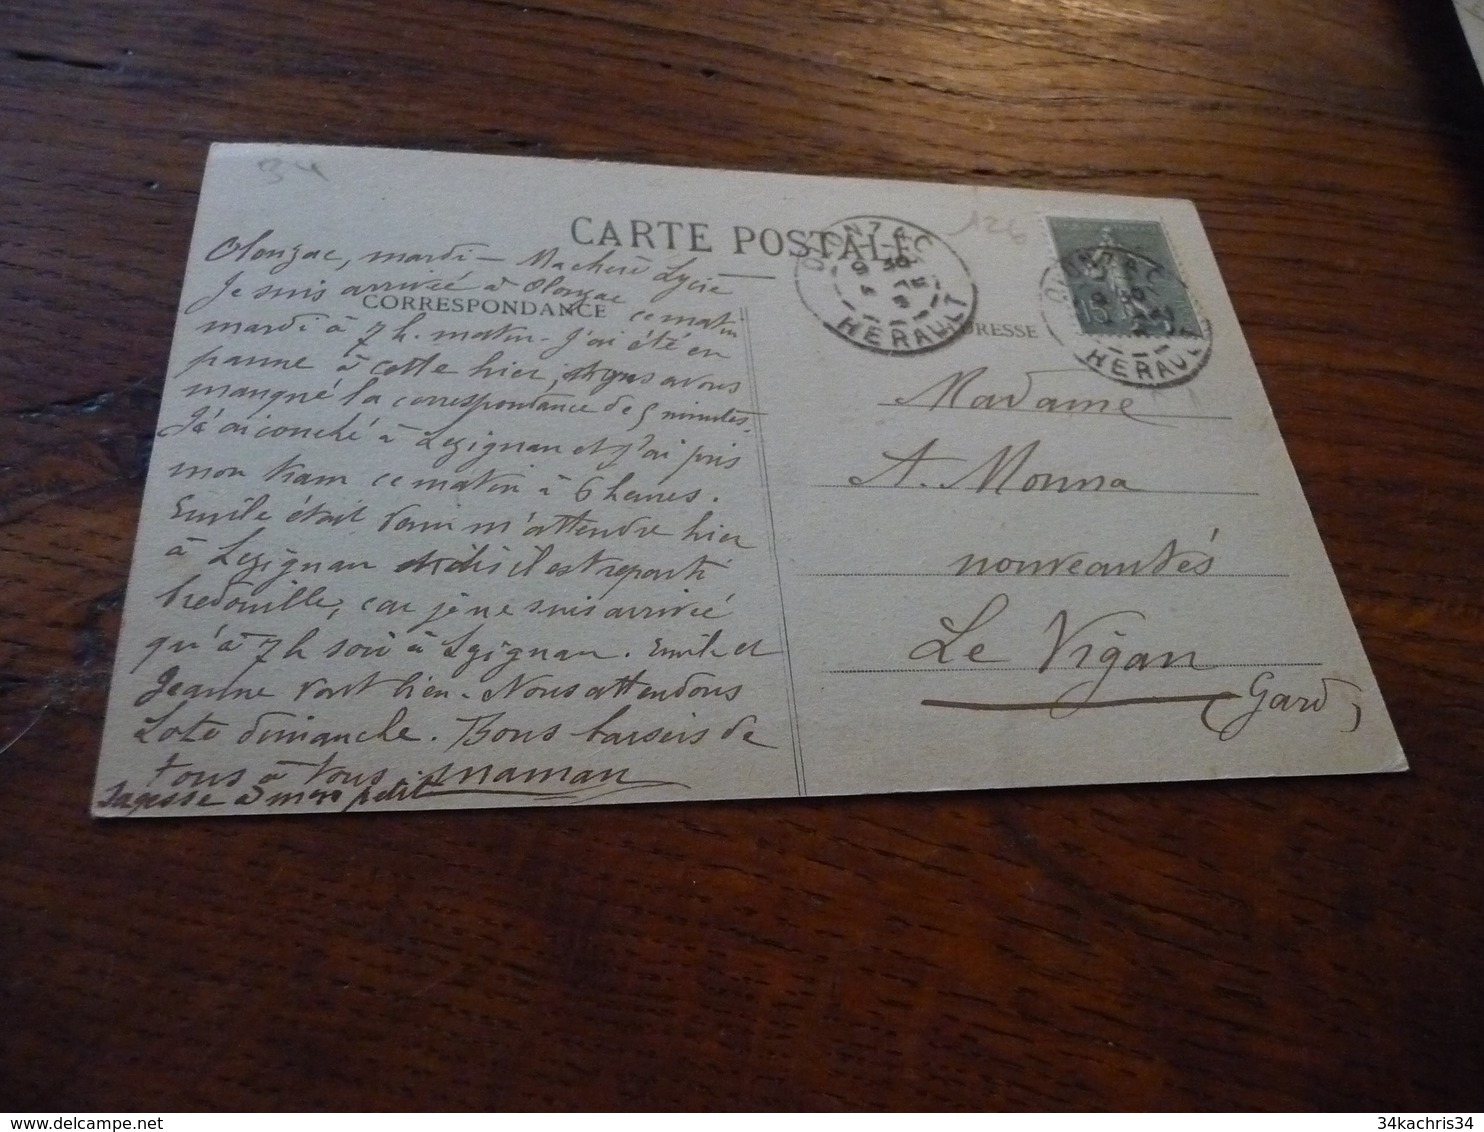 34
126
CARTE POSTALE
CORRESPONDANCE
ADRESSE
OLONZAC
9 30
HÉRAULT
OLONZAC
9 30
HÉRAULT
15
Olonzac, mardi — Ma chère Lycie
Je suis arrivée à Olonzac ce matin
mardi à 7 h. matin. J'ai été en
panne à cette hier, nous avons
manqué la correspondance de 5 minutes.
J'ai couché à Lezignan et j'ai pris
mon tram ce matin à 6 heures.
Emile était venu m'attendre hier
à Lezignan midi il est reparti
bredouille, car je ne suis arrivée
qu'à 7 h soir à Lezignan. Emile et
Jeanne vont bien. Nous attendons
Loto dimanche. Bons baisers de
tous à tous maman
Sagesse à mon petit
Madame
A. Monna
nouveautés
Le Vigan
(Gard)
34kachris34
delcampe.net